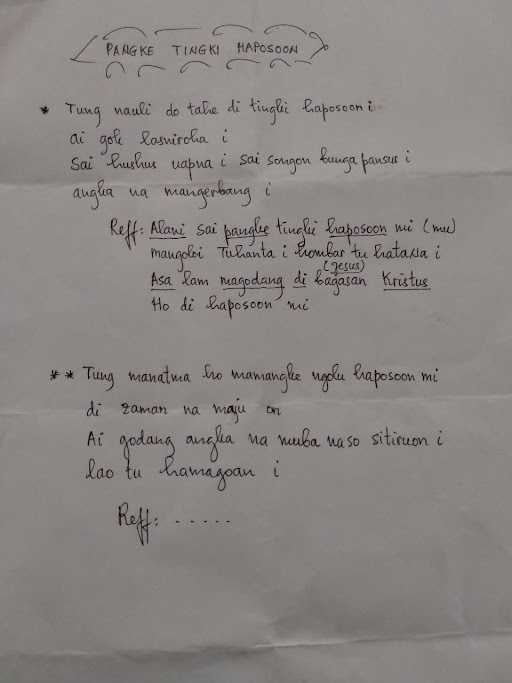 PANGKE TINGKI HAPOSOON
* Tung nauli do tahe di tingki haposoon i
ai gok lasniroha i
Sai hushus uapna i sai songon bunga pansur i
angka na mangerbang i
Reff: Alani sai pangke tingki haposoon mi (mu)
mangoloi Tuhanta i hombar tu hataNa i
(Jesus)
Asa lam magodang di bagasan Kristus
Ho di haposoon mi
** Tung manatma ho mamangke ngolu haposoon mi
di zaman na maju on
Ai godang angka na muba naso sitiruon i
lao tu hamagoan i
Reff: .....